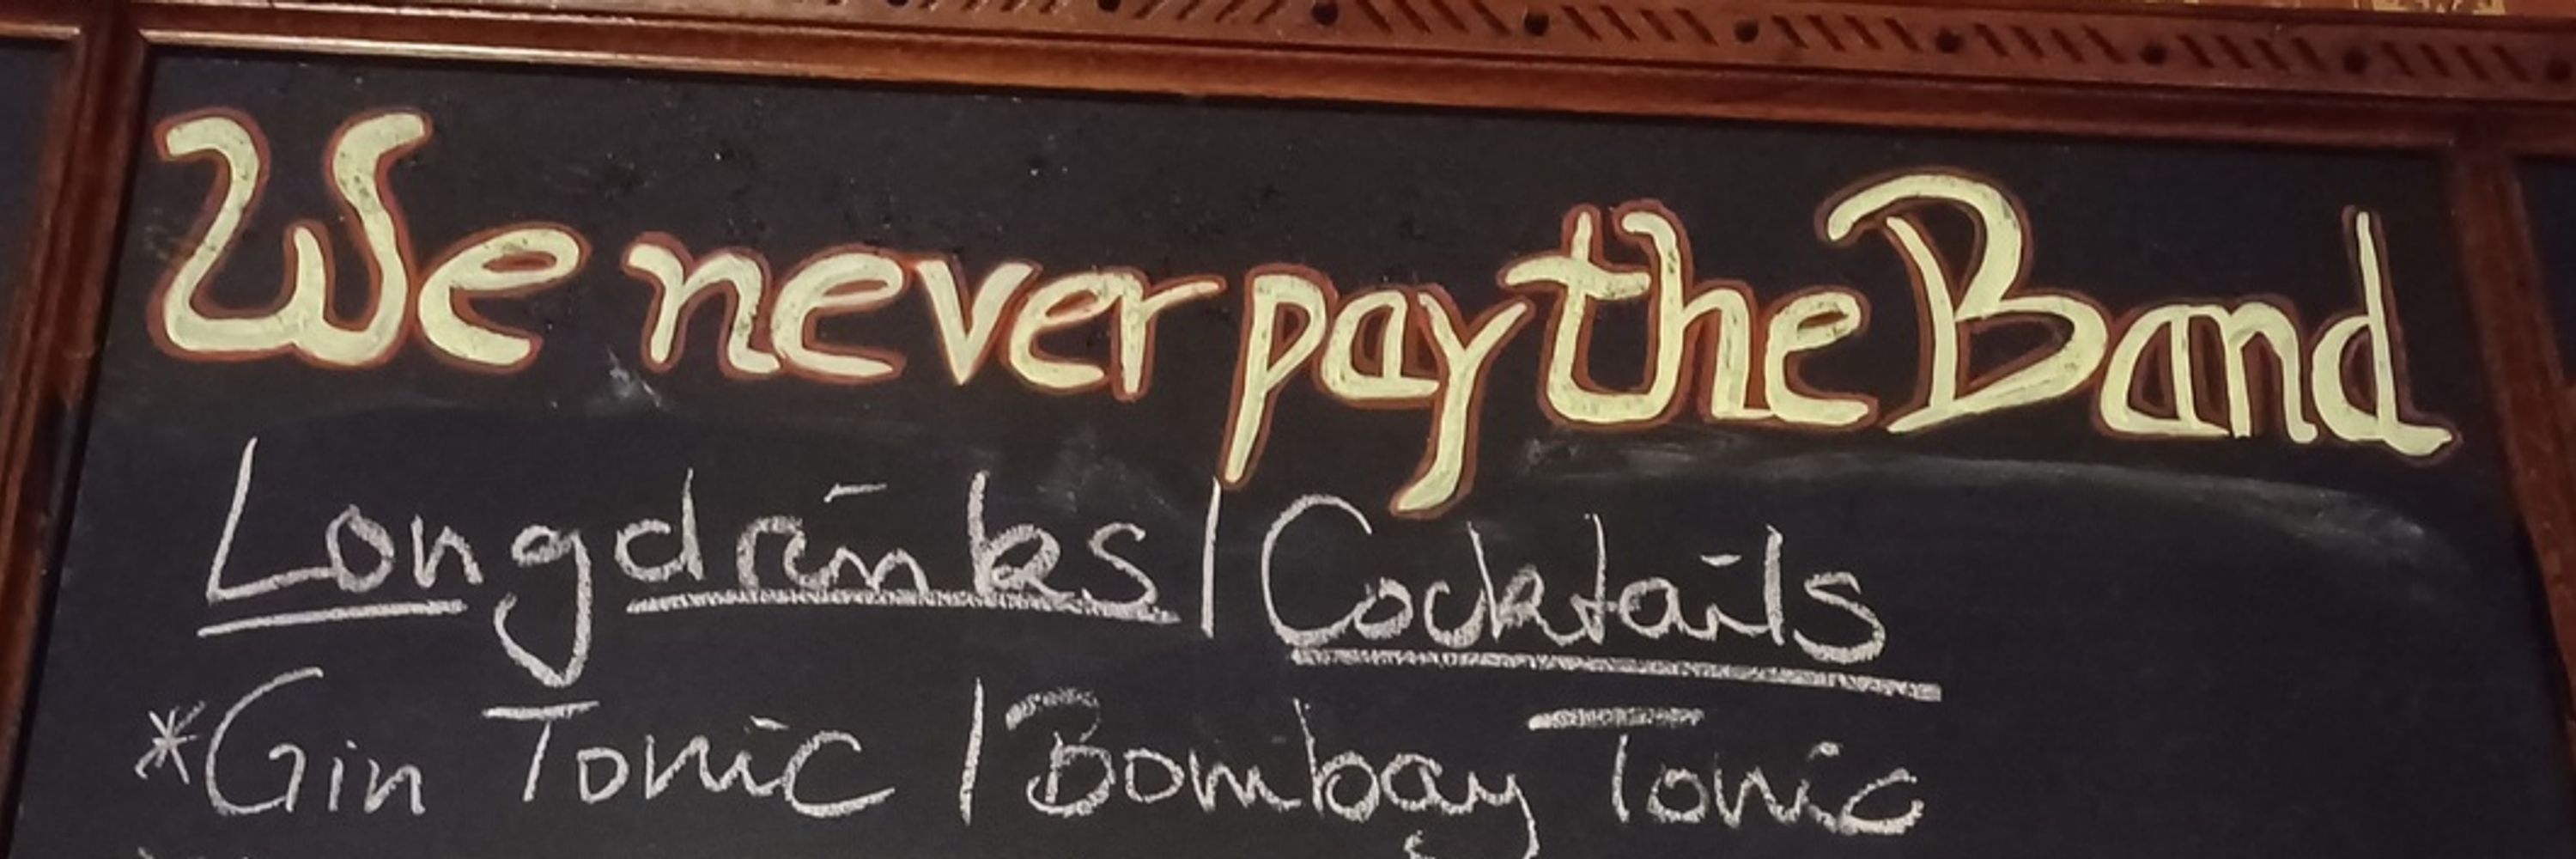 We never pay the Band
Longdrinks | Cocktails
*Gin Tonic | Bombay Tonic